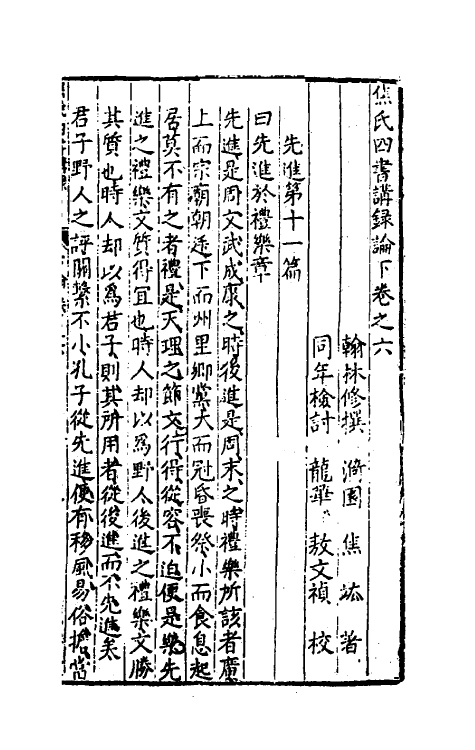 焦氏四書講録論下卷之六
翰林修撰 漪園 焦竑 著
同年檢討 龍華 敖文禎 校
先進第十一篇
曰先進於禮樂章
先進是周文武成康之時後進是周末之時禮樂所該者廣
上而宗廟朝廷下而州里鄉黨大而冠昏喪祭小而食息起
居莫不有之者禮是天理之節文行得從容不迫便是樂先
進之禮樂文質得宜也時人却以爲野人後進之禮樂文勝
其質也時人却以爲君子則其所用者從後進而不先進矣
君子野人之評關繫不小孔子從先進便有移風易俗擔當